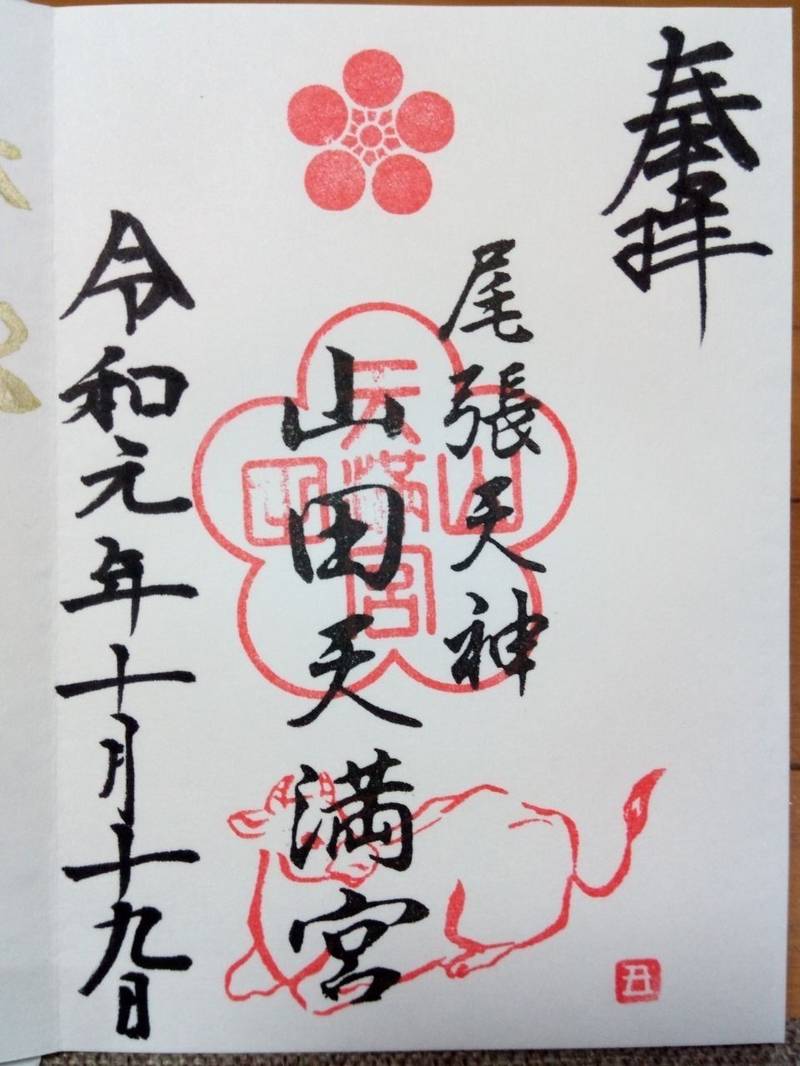 奉拝
尾張天神
山田天満宮
令和元年十月十九日
山
天満宮
田
丑